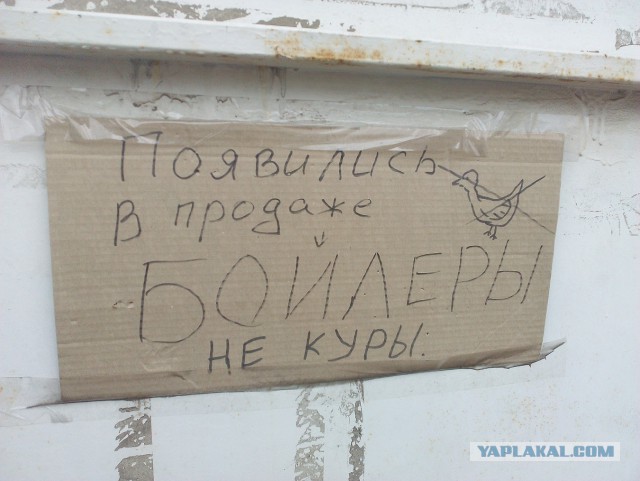 Появились
в продаже
БОЙЛЕРЫ
НЕ КУРЫ.
YAPLAKAL.COM